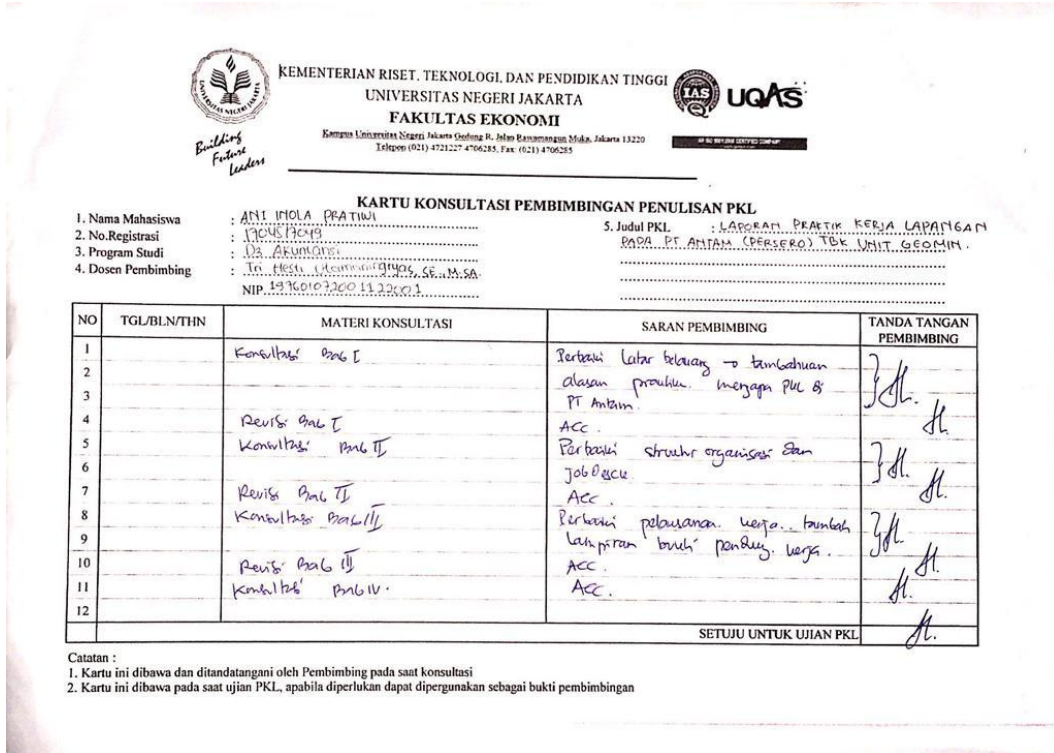 KEMENTERIAN RISET, TEKNOLOGI, DAN PENDIDIKAN TINGGI
UNIVERSITAS NEGERI JAKARTA
FAKULTAS EKONOMI
Kampus Universitas Negeri Jakarta Gedung R, Jalan Rawamangun Muka, Jakarta 13220
Telepon (021) 4721227 4706285, Fax: (021) 4706285
UNIVERSITAS NEGERI JAKARTA
Building
Future
Leaders
IAS
UQAS
KARTU KONSULTASI PEMBIMBINGAN PENULISAN PKL
1. Nama Mahasiswa : ANI INOLA PRATIWI
2. No.Registrasi : 1704517049
3. Program Studi : D3 Akuntansi
4. Dosen Pembimbing : Tri Hesti Utaminingtyas, SE., M.SA.
NIP. 197601072001122001
5. Judul PKL : LAPORAN PRAKTIK KERJA LAPANGAN
PADA PT ANTAM (PERSERO) TBK UNIT GEOMIN.
NO TGL/BLN/THN MATERI KONSULTASI SARAN PEMBIMBING TANDA TANGAN PEMBIMBING
1 Konsultasi Bab I Perbaiki latar belakang → tambahkan
2 alasan mengapa PKL di
3 PT Antam.
4 Revisi Bab I ACC.
5 Konsultasi Bab II Perbaiki struktur organisasi dan
6 Job Desck
7 Revisi Bab II ACC
8 Konsultasi Bab III Perbaiki pelaksanaan kerja.. tambah
9 lampiran bukti kerja.
10 Revisi Bab III ACC.
11 Konsultasi Bab IV. ACC.
12
SETUJU UNTUK UJIAN PKL
Catatan :
1. Kartu ini dibawa dan ditandatangani oleh Pembimbing pada saat konsultasi
2. Kartu ini dibawa pada saat ujian PKL, apabila diperlukan dapat dipergunakan sebagai bukti pembimbingan